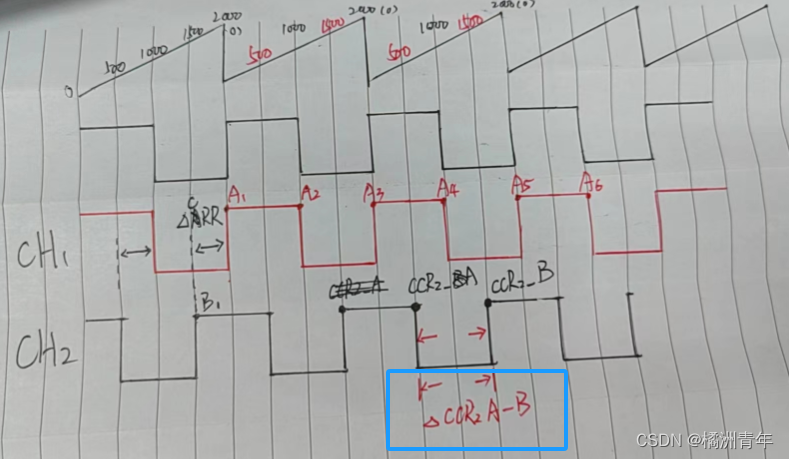 0 500 1000 1500 2000 (0) 500 1000 1500 2000(0) 500 1000 1500 2000(0)
A1 A2 A3 A4 A5 A6
CH1
B1 CCR2_A CCR2_B
CH2
△CCR2A-B
CSDN @橘洲青年